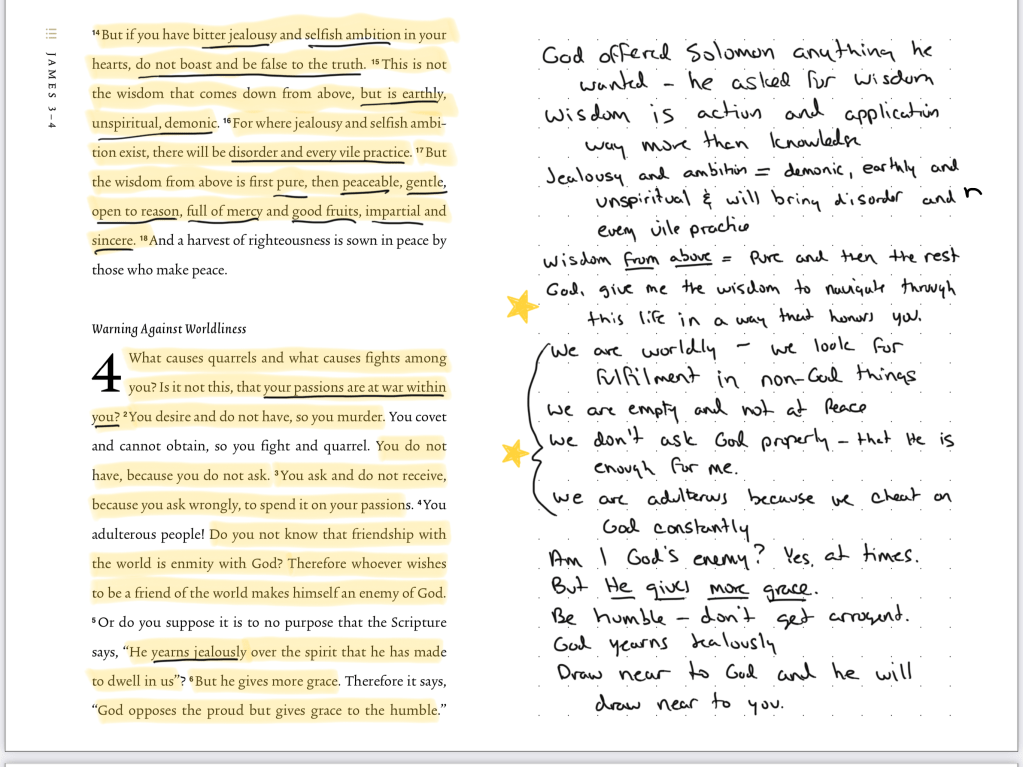 JAMES 3–4
¹⁴But if you have bitter jealousy and selfish ambition in your
hearts, do not boast and be false to the truth. ¹⁵This is not
the wisdom that comes down from above, but is earthly,
unspiritual, demonic. ¹⁶For where jealousy and selfish ambi-
tion exist, there will be disorder and every vile practice. ¹⁷But
the wisdom from above is first pure, then peaceable, gentle,
open to reason, full of mercy and good fruits, impartial and
sincere. ¹⁸And a harvest of righteousness is sown in peace by
those who make peace.
Warning Against Worldliness
4 What causes quarrels and what causes fights among
you? Is it not this, that your passions are at war within
you? ²You desire and do not have, so you murder. You covet
and cannot obtain, so you fight and quarrel. You do not
have, because you do not ask. ³You ask and do not receive,
because you ask wrongly, to spend it on your passions. ⁴You
adulterous people! Do you not know that friendship with
the world is enmity with God? Therefore whoever wishes
to be a friend of the world makes himself an enemy of God.
⁵Or do you suppose it is to no purpose that the Scripture
says, “He yearns jealously over the spirit that he has made
to dwell in us”? ⁶But he gives more grace. Therefore it says,
“God opposes the proud but gives grace to the humble.”
God offered Solomon anything he
wanted – he asked for wisdom
Wisdom is action and application
way more than knowledge
Jealousy and ambition = demonic, earthly and
unspiritual & will bring disorder and
every vile practice
Wisdom from above = Pure and then the rest
God, give me the wisdom to navigate through
this life in a way that honors you.
We are worldly – we look for
fulfilment in non-God things
We are empty and not at Peace
We don't ask God properly – that He is
enough for me.
We are adulterous because we cheat on
God constantly
Am I God's enemy? Yes, at times.
But He gives more grace.
Be humble – don't get arrogant.
God yearns Jealously
Draw near to God and he will
draw near to you.